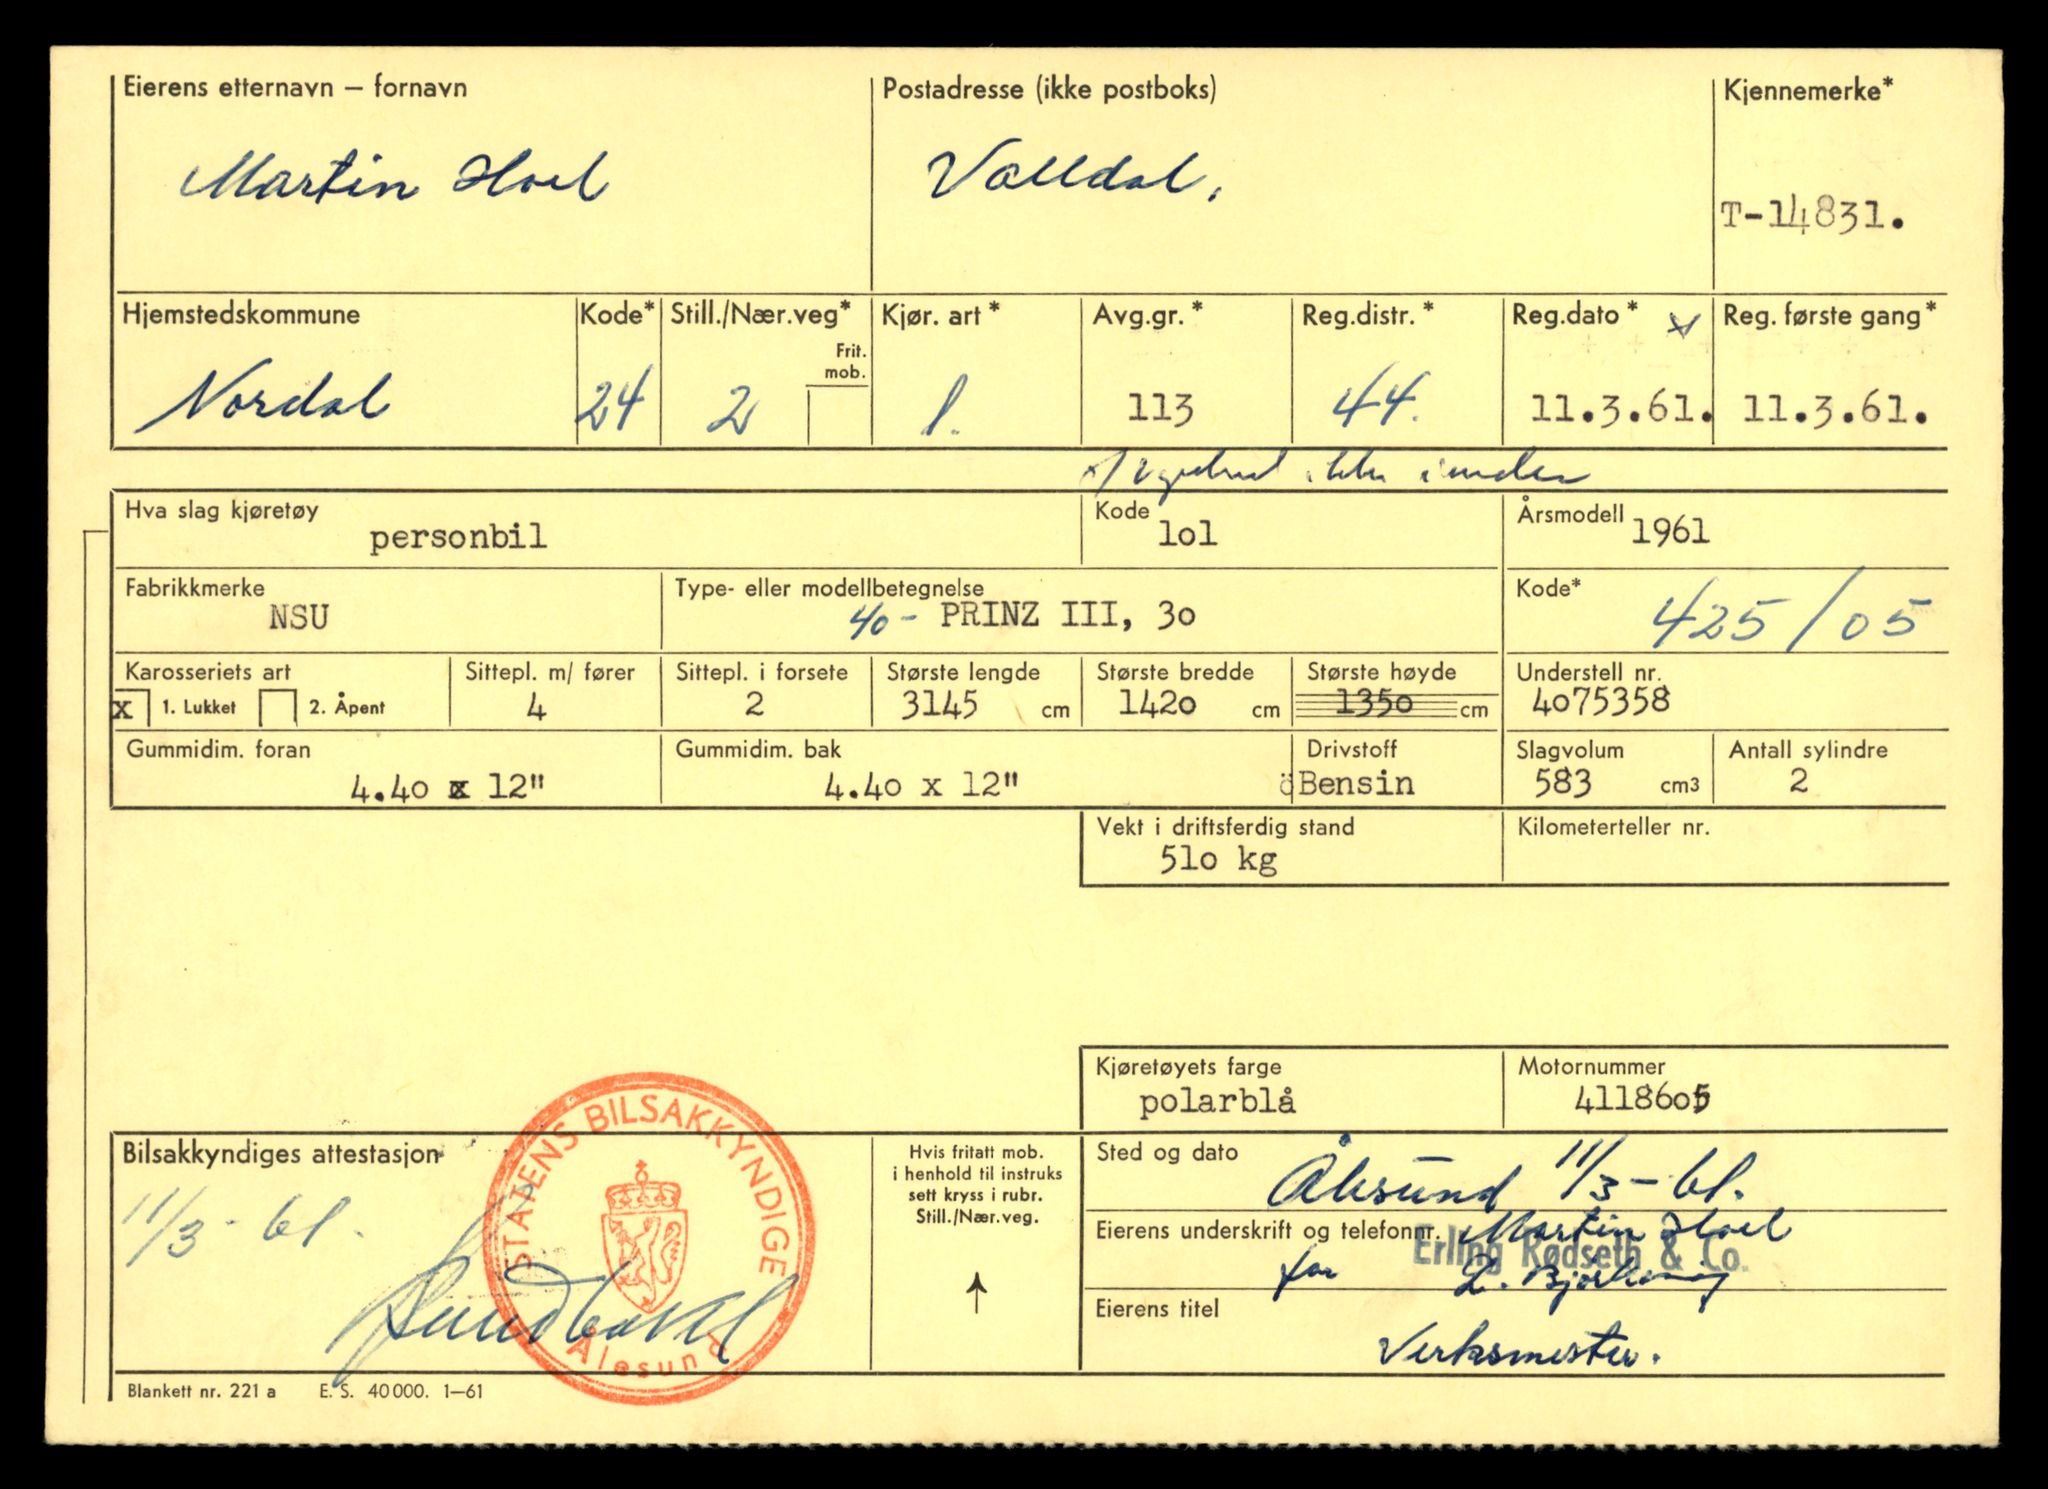 Eierens etternavn — fornavn
Martin Hoel
Postadresse (ikke postboks)
Valldal.
Kjennemerke*
T-14831.
Hjemstedskommune
Nordal
Kode*
24
Still./Nær.veg*
2
Frit.
mob.
Kjør. art *
1.
Avg.gr. *
113
Reg.distr. *
44.
Reg.dato *
11.3.61.
Reg. første gang*
11.3.61.
ikke
Hva slag kjøretøy
personbil
Kode
lol
Årsmodell
1961
Fabrikkmerke
NSU
Type- eller modellbetegnelse
40- PRINZ III, 3o
Kode*
425/05
Karosseriets art
x 1. Lukket 2. Åpent
Sittepl. m/ fører
4
Sittepl. i forsete
2
Største lengde
3145 cm
Største bredde
142o cm
Største høyde
135o cm
Understell nr.
4075358
Gummidim. foran
4.40 x 12"
Gummidim. bak
4.40 x 12"
Drivstoff
öBensin
Slagvolum
583 cm3
Antall sylindre
2
Vekt i driftsferdig stand
51o kg
Kilometerteller nr.
Kjøretøyets farge
polarblå
Motornummer
41186o5
Bilsakkyndiges attestasjon
11/3-61.
STATENS BILSAKKYNDIGE
Ålesund
Hvis fritatt mob.
i henhold til instruks
sett kryss i rubr.
Still./Nær.veg.
Sted og dato
Ålesund 11/3-61.
Eierens underskrift og telefonnr.
Martin Hoel
Erling Rødseth & Co.
for
Eierens titel
Verksmester.
Blankett nr. 221 a E. S. 40 000. 1—61